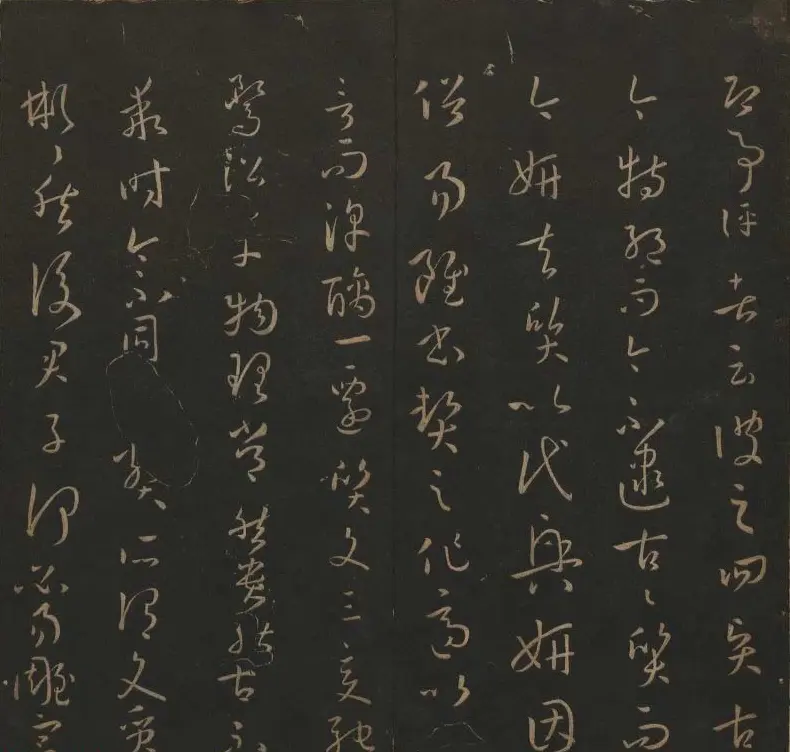 即事評者云彼之四賢古
今特絕而今不逮古古質而
今妍夫質以代興妍因
俗易雖書契之作適以
言而淳醨一遷質文三變馳
騖沿革物理常然貴能古不
乖時今不同弊所謂文質
彬彬然後君子何必易雕宮